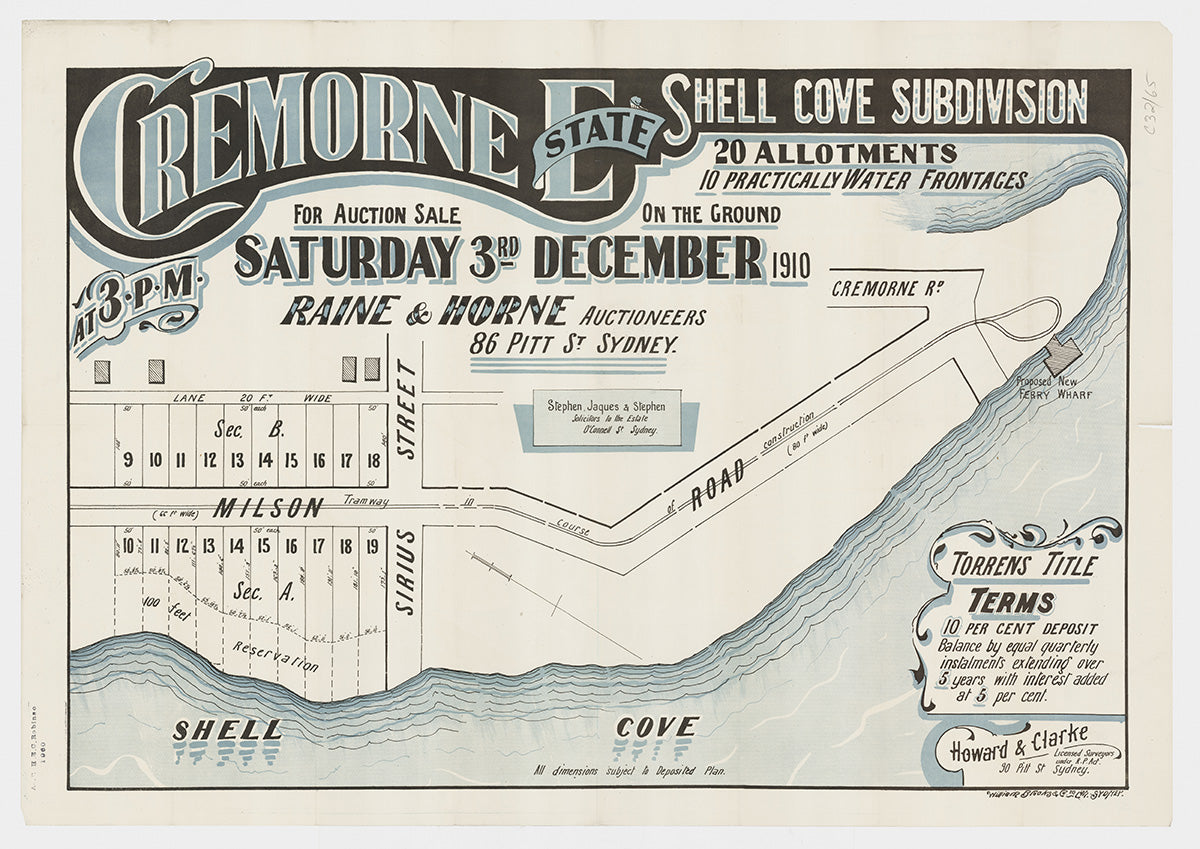 CREMORNE ESTATE
SHELL COVE SUBDIVISION
20 ALLOTMENTS
10 PRACTICALLY WATER FRONTAGES
FOR AUCTION SALE ON THE GROUND
SATURDAY 3RD DECEMBER 1910
AT 3.P.M.
RAINE & HORNE AUCTIONEERS
86 PITT ST SYDNEY.
C32/65
CREMORNE RD
Proposed New
FERRY WHARF
Stephen, Jaques & Stephen
Solicitors to the Estate
O'Connell St Sydney.
LANE 20 FT WIDE
50' 50' each 50'
Sec. B.
9 10 11 12 13 14 15 16 17 18
50' 50' each 50'
MILSON ROAD
(66 ft wide)
Tramway in course of construction
(80 ft wide)
SIRIUS STREET
50' 50' each 50'
10 11 12 13 14 15 16 17 18 19
Sec. A.
100 feet
Reservation
SHELL COVE
All dimensions subject to Deposited Plan.
TORRENS TITLE
TERMS
10 PER CENT DEPOSIT
Balance by equal quarterly
instalments extending over
5 years with interest added
at 5 per cent.
Howard & Clarke
Licensed Surveyors
under R.P. Act.
90 Pitt St Sydney.
1960